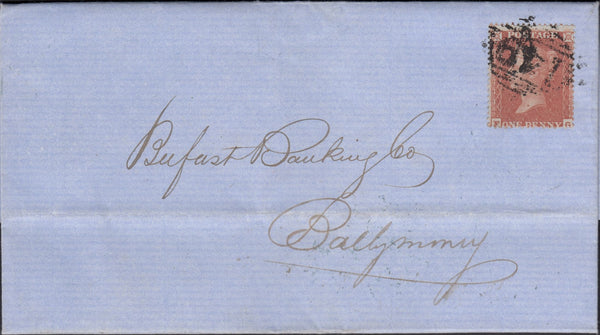 POSTAGE
ONE PENNY
Belfast Banking Co
Ballymoney